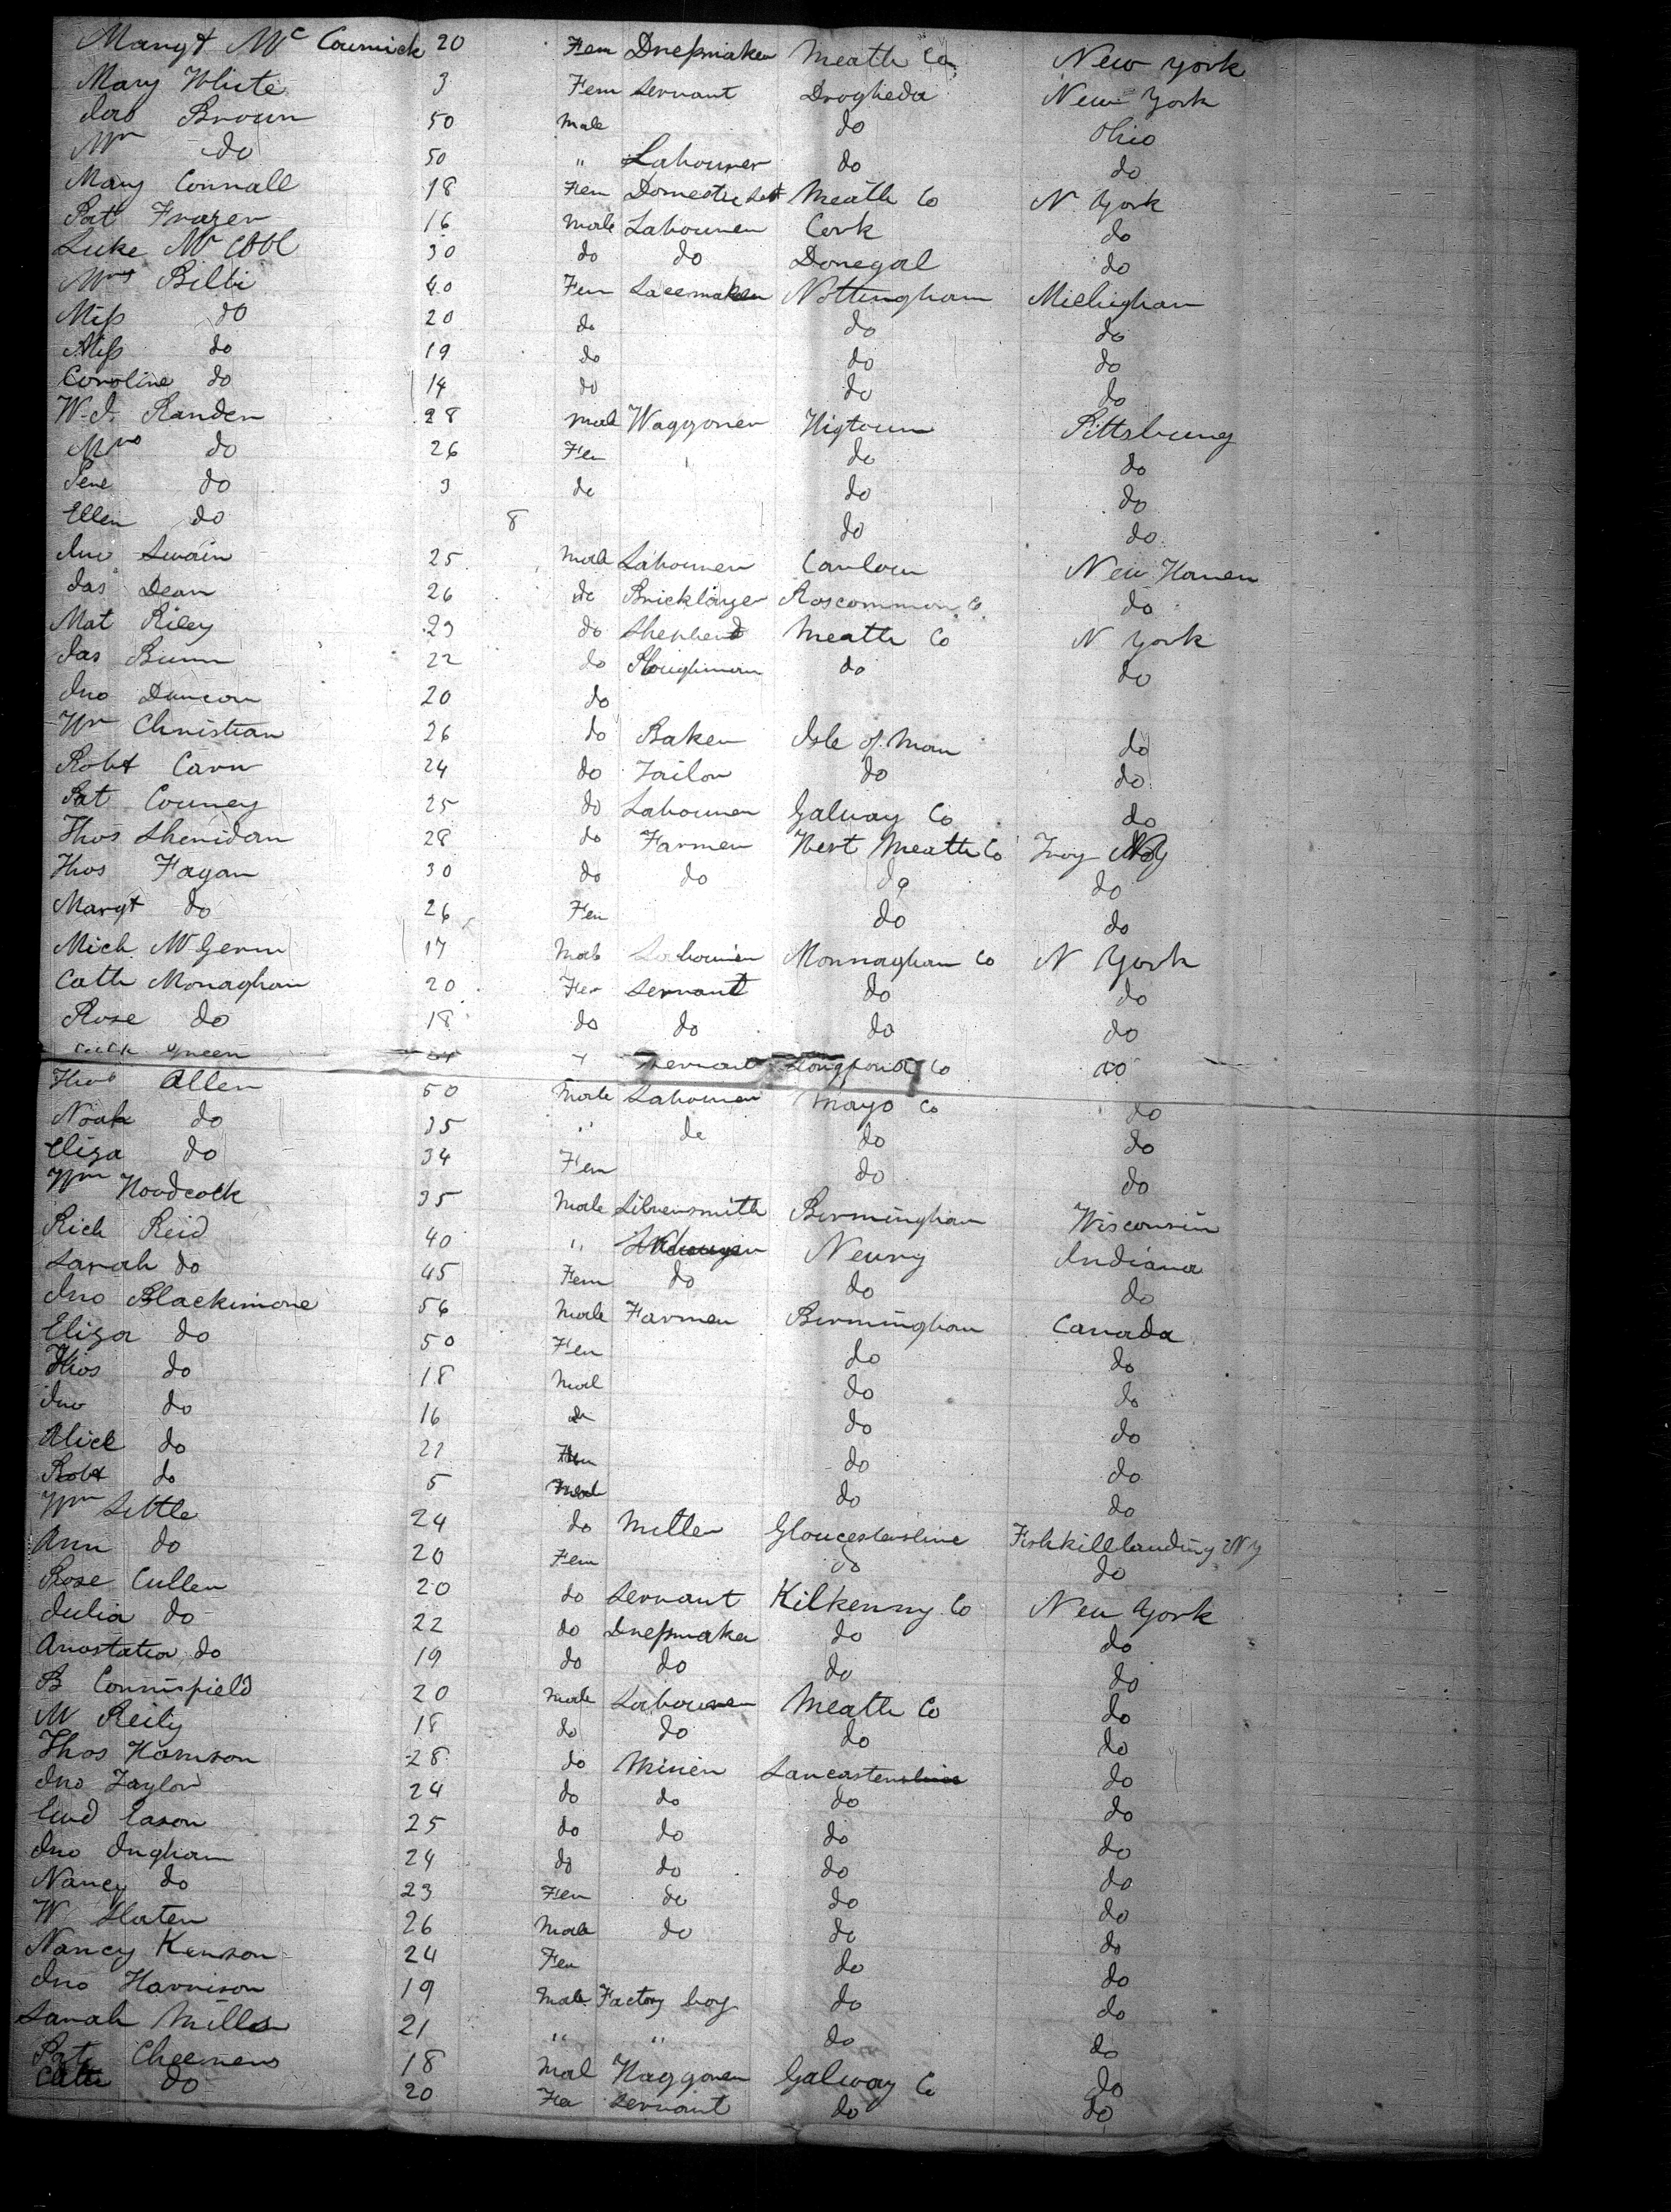 Margt McCormick 20 Fem Dressmaker Meath Co New York
Mary White 3 Fem Servant Drogheda New York
Jas Brown 50 Male do Ohio
Wm do 50 " Labourer do do
Mary Connall 18 Fem Domestic Sert Meath Co N. York
Pat Frazer 16 Male Labourer Cork do
Luke McCool 30 do do Donegal do
Mrs Bilbi 40 Fem Lacemaker Nottingham Michigham
Miss do 20 do do do
Miss do 19 do do do
Caroline do 14 do do do
W. J. Randen 28 Male Waggoner Wigtown Pittsburg
Mrs do 26 Fem do do
Jene do 3 do do do
Ellen do 8 do do
Jno Swain 25 Male Labourer Carlow New Haven
Jas Dean 26 do Bricklayer Roscommon Co do
Mat Riley 23 do Shepherd Meath Co N York
Jas Bunn 22 do Ploughman do do
Jno Duncan 20 do
Wm Christian 26 do Baker Isle of Man do
Robt Carr 24 do Tailor do do
Pat Couney 25 do Labourer Galway Co do
Thos Sheridan 28 do Farmer West Meath Co Troy NY
Thos Fagan 30 do do do do
Margt do 26 Fem do do
Mich McGerm 17 Male Labourer Monnaghan Co N York
Cath Monaghan 20 Fem Servant do do
Rose do 18 do do do do
Green Servant Longford Co do
Thos Allen 50 Male Labourer Mayo Co do
Noah do 35 " do do do
Eliza do 34 Fem do do
Wm Woodcock 35 Male Silversmith Birmingham Wisconsin
Rich Reid 40 " Newry Indiana
Sarah do 45 Fem do do do
Jno Blackimore 56 Male Farmer Birmingham Canada
Eliza do 50 Fem do do
Thos do 18 Male do do
Jno do 16 do do do
Alice do 22 Fem do do
Robt do 5 Male do do
Wm Settle 24 do Miller Gloucestershire Fishkill landing NY
Ann do 20 Fem do do
Rose Cullen 20 do Servant Kilkenny Co New York
Julia do 22 do Dressmaker do do
Anastatia do 19 do do do do
B Connisfield 20 Male Labourer Meath Co do
M Reily 18 do do do do
Thos Harrison 28 do Miner Lancastershire do
Jno Taylor 24 do do do do
Ewd Eason 25 do do do do
Jno Ingham 24 do do do do
Nancy do 23 Fem do do do
W Slater 26 Male do do do
Nancy Kenson 24 Fem do do
Jno Harrison 19 Male Factory boy do do
Sarah Mills 21 " " do do
Pat Cheeners 18 Male Waggoner Galway Co do
Cath do 20 Fem Servant do do